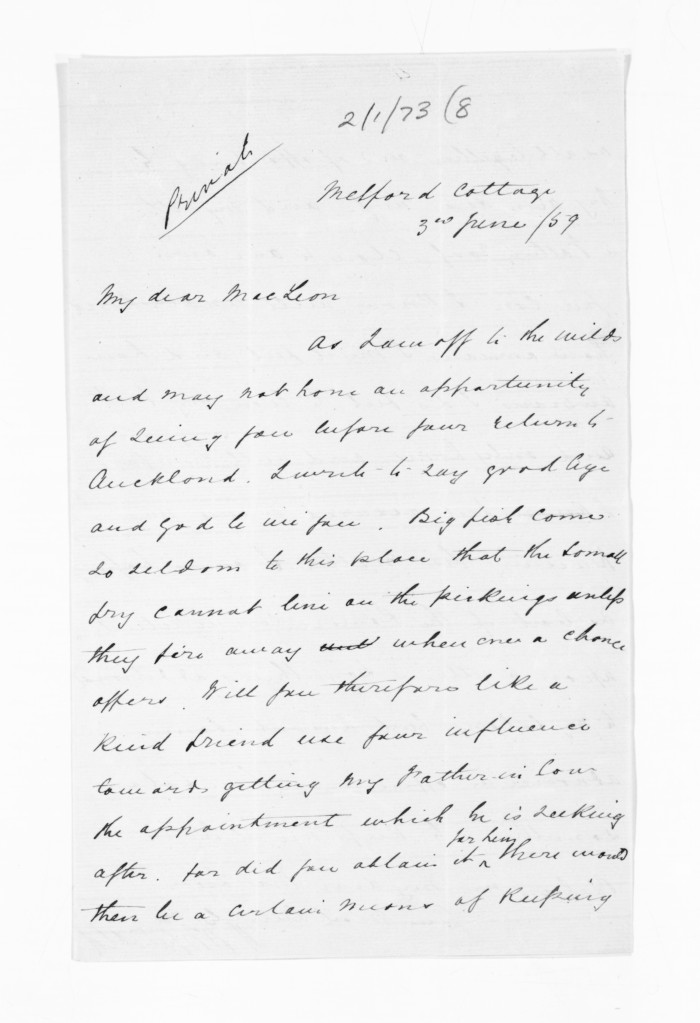 2/1/73 (8
Private
Melford Cottage
3rd June /59
My dear MacLean
As I am off to the wilds
and may not have an opportunity
of seeing you before your return to
Auckland. I write to say good bye
and God be wi you. Big fish come
so seldom to this place that the small
fry cannot live on the pickings unless
they fire away and when ever a chance
offers. Will you therefore like a
kind friend use your influence
towards getting my Father in law
the appointment which he is seeking
for him
after. for did you obtain it there would
then be a certain means of keeping